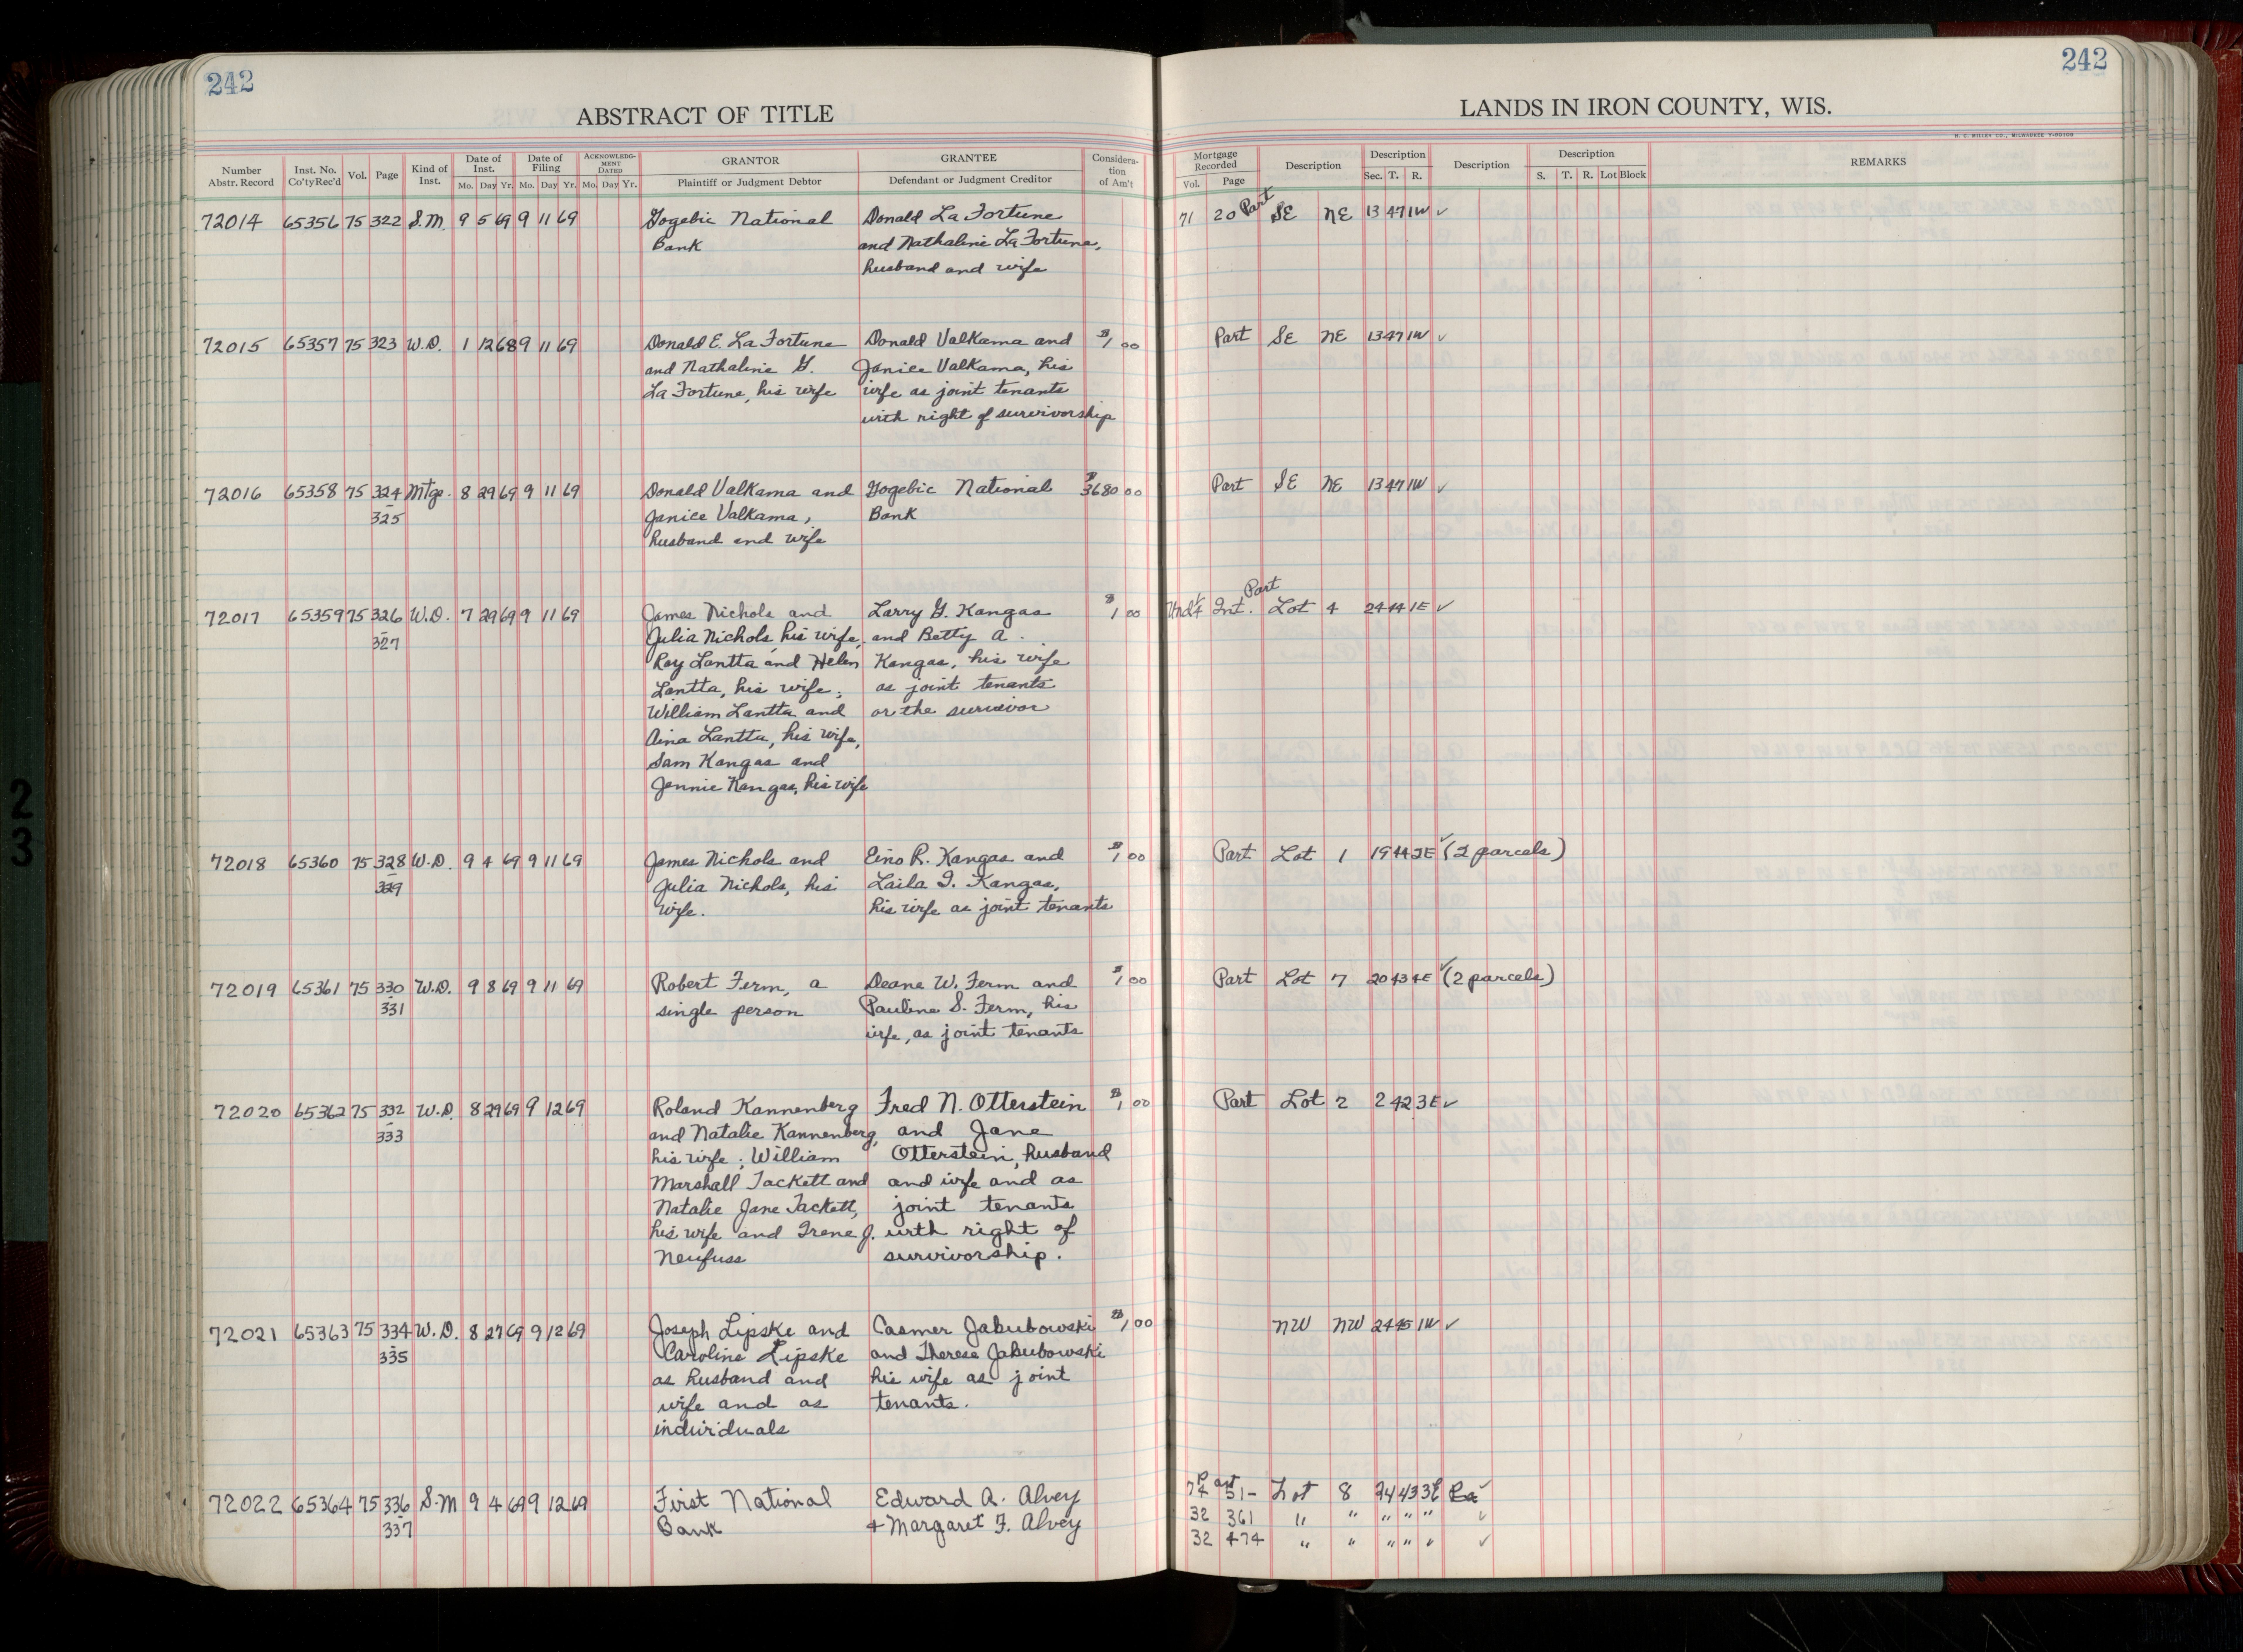 242
242
ABSTRACT OF TITLE
LANDS IN IRON COUNTY, WIS.
H. C. MILLER CO., MILWAUKEE
Number Abstr. Record
Inst. No. Co'ty Rec'd
Vol.
Page
Kind of Inst.
Date of Inst.
Mo. Day Yr.
Date of Filing
Mo. Day Yr.
ACKNOWLEDGMENT DATED
Mo. Day Yr.
GRANTOR
Plaintiff or Judgment Debtor
GRANTEE
Defendant or Judgment Creditor
Consideration of Am't
Mortgage Recorded
Vol. Page
Description
Description
Sec. T. R.
Description
Description
S. T. R. Lot Block
REMARKS
72014 65356 75 322 S.M. 9 5 69 9 11 69 Gogebic National Donald La Fortune 71 20 Part SE NE 13 47 1W ✓
Bank and Nathaline La Fortune,
husband and wife
72015 65357 75 323 W.D. 1 12 68 9 11 69 Donald E. La Fortune Donald Valkama and $1 00 Part SE NE 13 47 1W ✓
and Nathaline G. Janice Valkama, his
La Fortune, his wife wife as joint tenants
with right of survivorship
72016 65358 75 324 Mtge. 8 29 69 9 11 69 Donald Valkama and Gogebic National $3680 00 Part SE NE 13 47 1W ✓
325 Janice Valkama, Bank
husband and wife
72017 65359 75 326 W.D. 7 29 69 9 11 69 James Nichols and Larry G. Kangas $1 00 Und ¼ Int. Part Lot 4 24 44 1E ✓
327 Julia Nichols, his wife, and Betty A.
Roy Lantta and Helen Kangas, his wife
Lantta, his wife, as joint tenants
William Lantta and or the survivor
Aina Lantta, his wife,
Sam Kangas and
Jennie Kangas, his wife
72018 65360 75 328 W.D. 9 4 69 9 11 69 James Nichols and Eino R. Kangas and $1 00 Part Lot 1 19 44 2E ✓ (2 parcels)
329 Julia Nichols, his Laila I. Kangas,
wife. his wife as joint tenants
72019 65361 75 330 W.D. 9 8 69 9 11 69 Robert Ferm, a Deane W. Ferm and $1 00 Part Lot 7 20 43 4E ✓ (2 parcels)
331 single person Pauline S. Ferm, his
wife, as joint tenants
72020 65362 75 332 W.D. 8 29 69 9 12 69 Roland Kannenberg Fred N. Otterstein $1 00 Part Lot 2 2 42 3E ✓
333 and Natalie Kannenberg, and Jane
his wife; William Otterstein, husband
Marshall Tackett and and wife and as
Natalie Jane Tackett, joint tenants
his wife and Irene J. with right of
Neufuss survivorship.
72021 65363 75 334 W.D. 8 27 69 9 12 69 Joseph Lipske and Casmer Jakubowski $1 00 NW NW 24 45 1W ✓
335 Caroline Lipske and Therese Jakubowski
as husband and his wife as joint
wife and as tenants.
individuals
72022 65364 75 336 S.M 9 4 69 9 12 69 First National Edward A. Alvey 74 51- Part Lot 8 24 43 3E ✓
337 Bank + Margaret F. Alvey 32 361 " " " " " ✓
32 474 " " " " " ✓
23